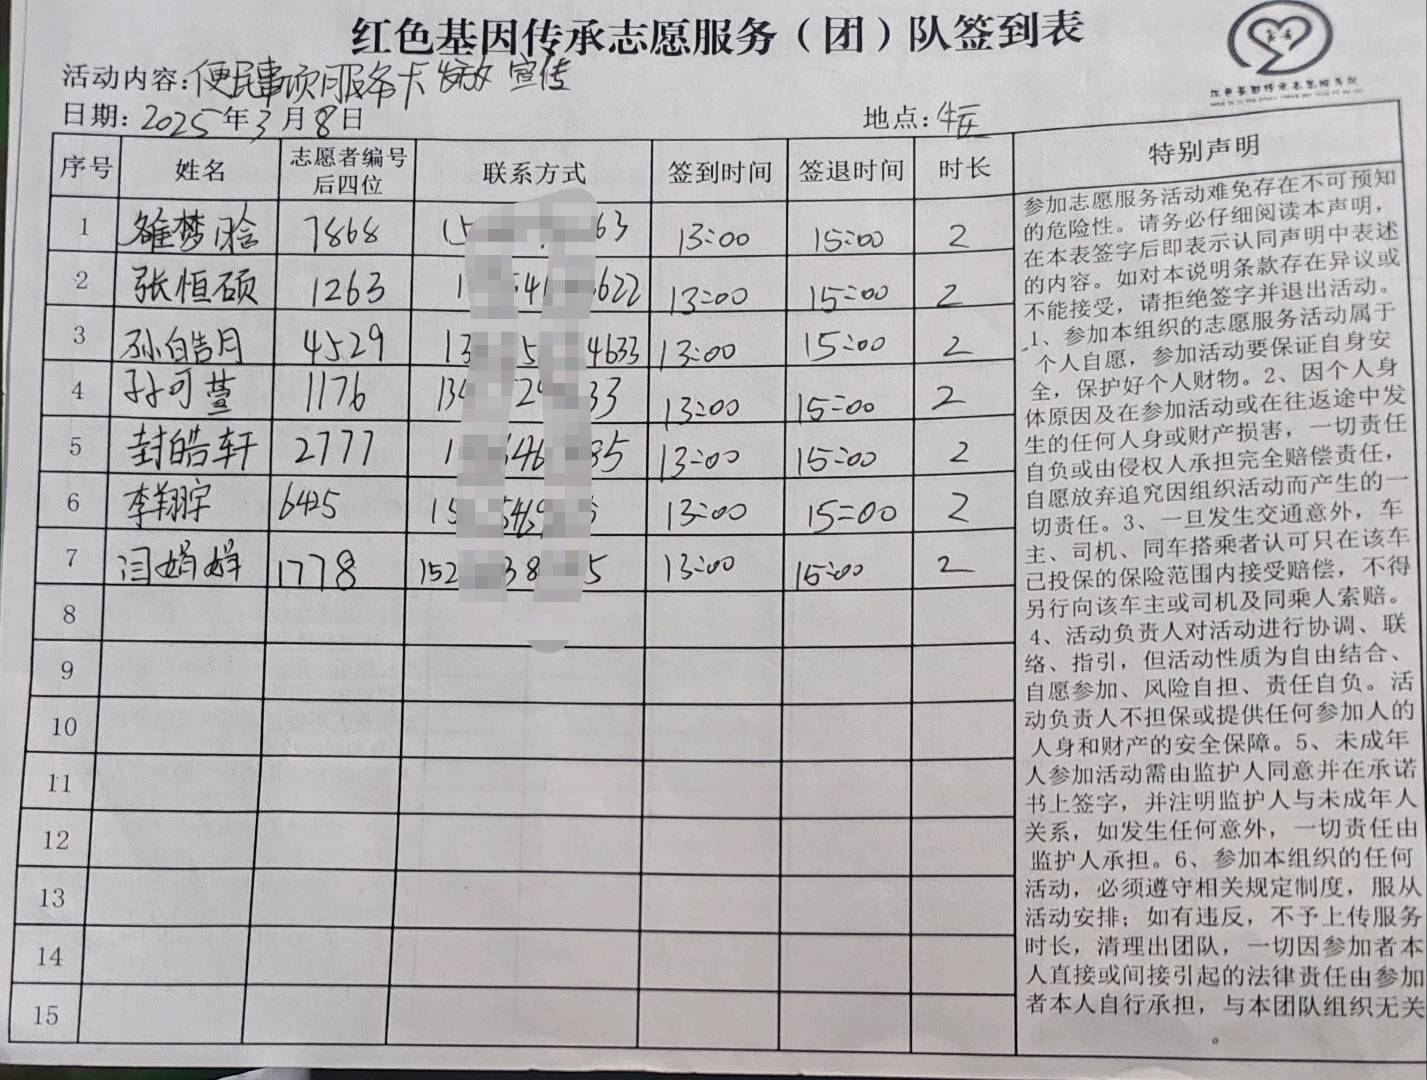 红色基因传承志愿服务（团）队签到表
活动内容:便民事项服务卡发放 宣传
日期:2025年3月8日
地点:
序号 姓名 志愿者编号后四位 联系方式 签到时间 签退时间 时长
1 雒梦晗 7868 15 63 13:00 15:00 2
2 张恒硕 1263 1 541 622 13:00 15:00 2
3 孙皓月 4529 13 5 4633 13:00 15:00 2
4 孙可萱 1176 134 24 33 13:00 15:00 2
5 封皓轩 2777 1 546 85 13:00 15:00 2
6 李翔宇 6425 15 5 13:00 15:00 2
7 闫娟娟 1778 152 38 5 13:00 15:00 2
8
9
10
11
12
13
14
15
特别声明
参加志愿服务活动难免存在不可预知
的危险性。请务必仔细阅读本声明，
在本表签字后即表示认同声明中表述
的内容。如对本说明条款存在异议或
不能接受，请拒绝签字并退出活动。
1、参加本组织的志愿服务活动属于
个人自愿，参加活动要保证自身安
全，保护好个人财物。2、因个人身
体原因及在参加活动或在往返途中发
生的任何人身或财产损害，一切责任
自负或由侵权人承担完全赔偿责任，
自愿放弃追究因组织活动而产生的一
切责任。3、一旦发生交通意外，车
主、司机、同车搭乘者认可只在该车
已投保的保险范围内接受赔偿，不得
另行向该车主或司机及同乘人索赔。
4、活动负责人对活动进行协调、联
络、指引，但活动性质为自由结合、
自愿参加、风险自担、责任自负。活
动负责人不担保或提供任何参加人的
人身和财产的安全保障。5、未成年
人参加活动需由监护人同意并在承诺
书上签字，并注明监护人与未成年人
关系，如发生任何意外，一切责任由
监护人承担。6、参加本组织的任何
活动，必须遵守相关规定制度，服从
活动安排；如有违反，不予上传服务
时长，清理出团队，一切因参加者本
人直接或间接引起的法律责任由参加
者本人自行承担，与本团队组织无关
。